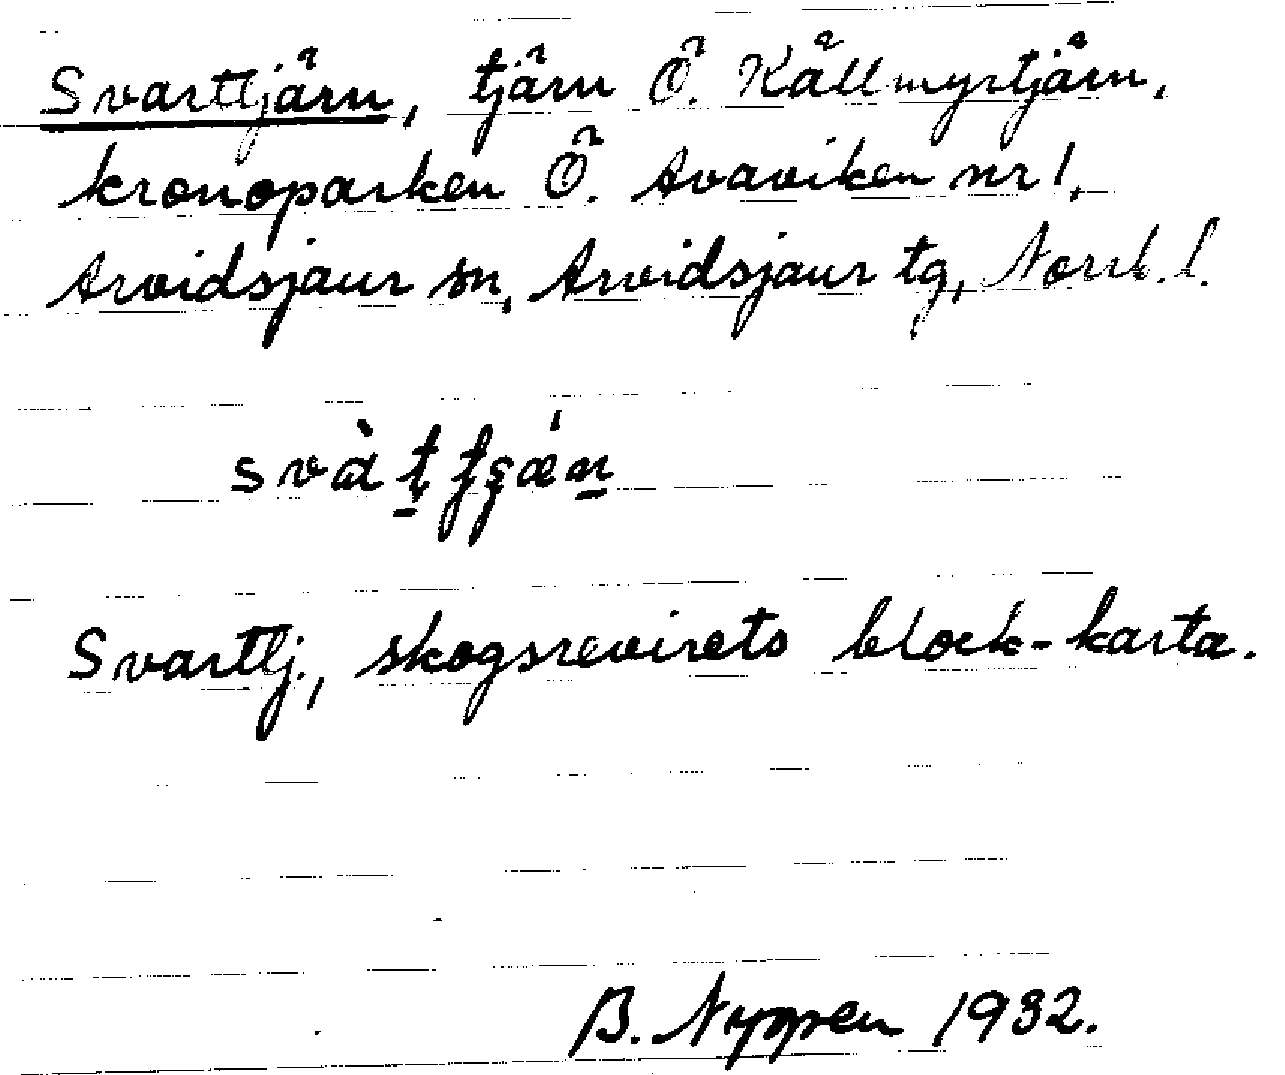 Svarttjärn, tjärn Ö. Källmyrtjärn,
kronoparken Ö. Avaviken nr 1,
Arvidsjaur sn, Arvidsjaur tg, Norrb. l.
Svarttj., skogsrevirets block-karta.
B. Nyppen 1932.